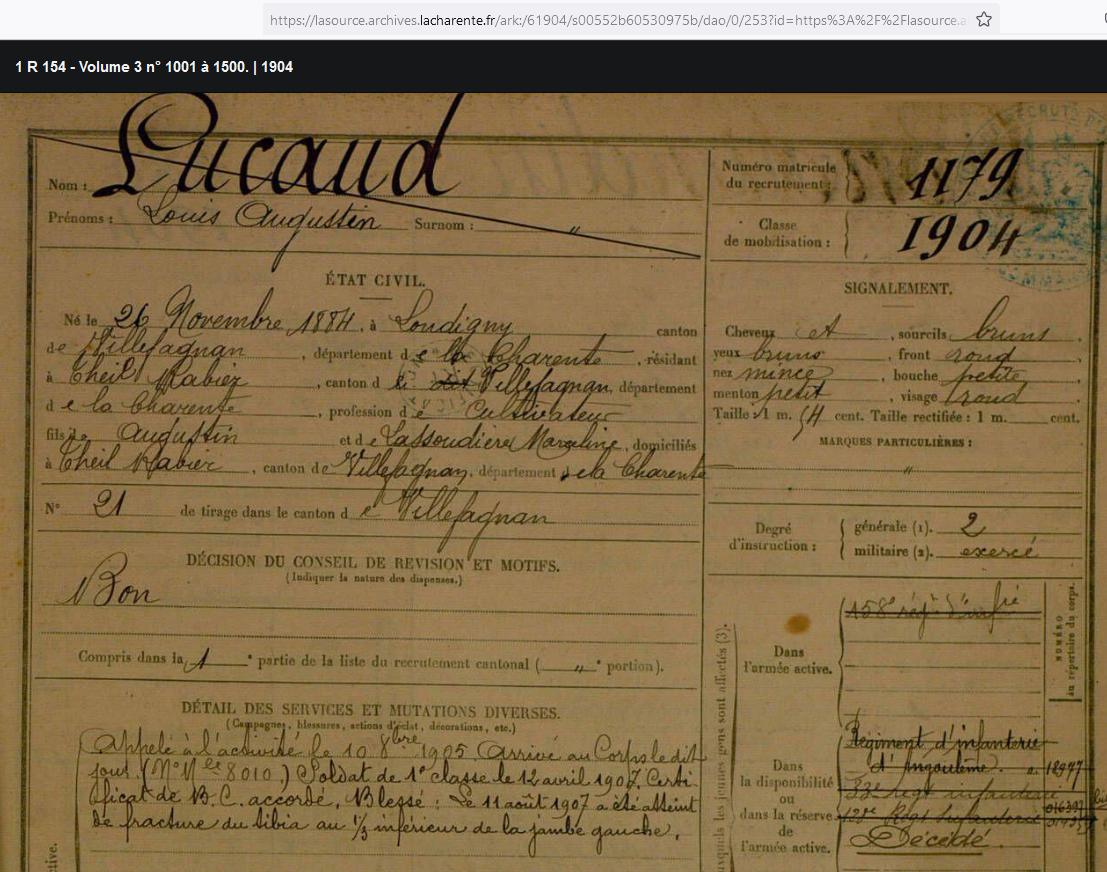 https://lasource.archives.lacharente.fr/ark:/61904/s00552b60530975b/dao/0/253?id=https%3A%2F%2Flasource.a
1 R 154 - Volume 3 n° 1001 à 1500. | 1904
Nom : Lucaud
Prénoms : Louis Augustin Surnom : "
ÉTAT CIVIL.
Né le 26 Novembre 1884, à Londigny canton
de Villefagnan, département de la Charente, résidant
à Theil Rabier, canton d dit Villefagnan, département
de la Charente, profession de Cultivateur
fils de Augustin et de Lassoudière Marceline, domiciliés
à Theil Rabier, canton de Villefagnan, département de la Charente
N° 21 de tirage dans le canton de Villefagnan
DÉCISION DU CONSEIL DE REVISION ET MOTIFS.
(Indiquer la nature des dispenses.)
Bon
Compris dans la 1 e partie de la liste du recrutement cantonal ( " e portion).
DÉTAIL DES SERVICES ET MUTATIONS DIVERSES.
(Campagnes, blessures, actions d'éclat, décorations, etc.)
Appelé à l'activité le 10 8bre 1905. Arrivé au Corps le dit
jour. (N° Mle 8010.) Soldat de 1e classe le 12 avril 1907. Certi
ficat de B.C. accordé. Blessé : Le 11 août 1907 a été atteint
de fracture du tibia au 1/3 inférieur de la jambe gauche.
Numéro matricule
du recrutement : 1179
Classe
de mobilisation : 1904
SIGNALEMENT.
Cheveux et, sourcils bruns
yeux bruns, front rond
nez mince, bouche petite
menton petit, visage rond
Taille : 1 m. 54 cent. Taille rectifiée : 1 m. cent.
MARQUES PARTICULIÈRES :
"
Degré
d'instruction :
générale (1). 2
militaire (2). exercé
Dans
l'armée active.
158e régt d'infie
NUMÉRO
au répertoire du corps.
Dans
la disponibilité
ou
dans la réserve
de
l'armée active.
Régiment d'infanterie
d'Angoulême.
Régt Infanterie
Décédé.